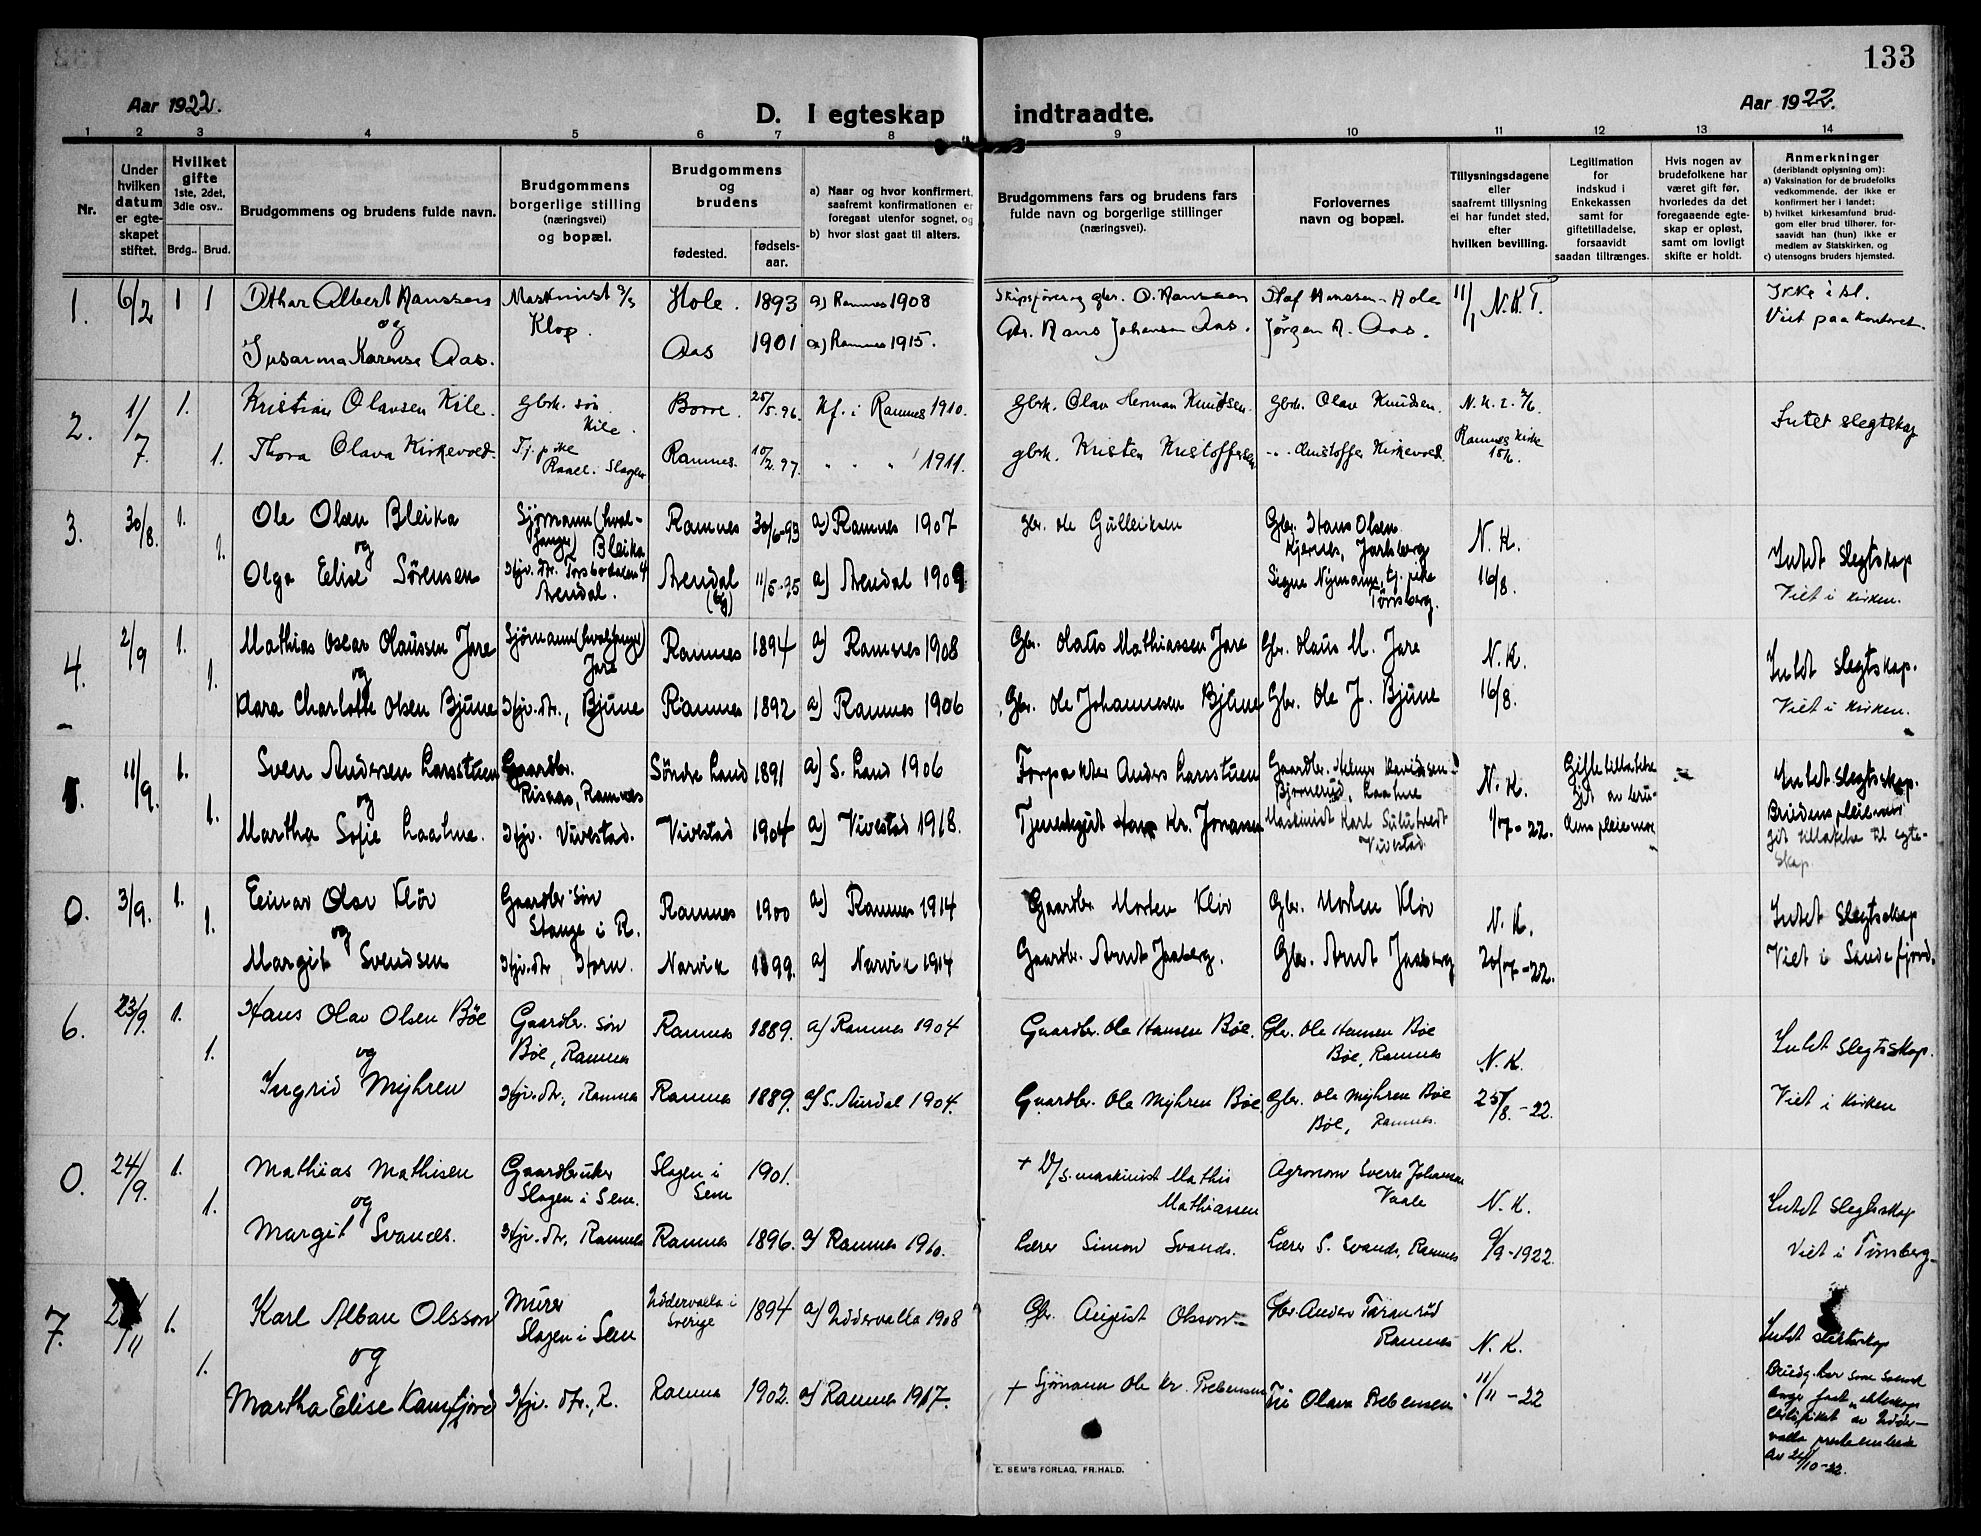 133
Aar 1922.
D. I egteskap indtraadte.
Aar 1922.
1 2 3 4 5 6 7 8 9 10 11 12 13 14
Nr.
Under hvilken datum er egteskapet stiftet.
Hvilket gifte 1ste, 2det, 3die osv..
Brdg.. Brud.
Brudgommens og brudens fulde navn.
Brudgommens borgerlige stilling (næringsvei) og bopæl.
Brudgommens og brudens
fødested. fødselsaar.
a) Naar og hvor konfirmert, saafremt konfirmationen er foregaat utenfor sognet, og
b) hvor sidst gaat til alters.
Brudgommens fars og brudens fars fulde navn og borgerlige stillinger (næringsvei).
Forlovernes navn og bopæl.
Tillysningsdagene eller saafremt tillysning ei har fundet sted, efter hvilken bevilling.
Legitimation for indskud i Enkekassen samt for giftetilladelse, forsaavidt saadan tiltrænges.
Hvis nogen av brudefolkene har været gift før, hvorledes da det foregaaende egteskap er opløst, samt om lovligt skifte er holdt.
Anmerkninger (deriblandt oplysning om):
a) Vaksination for de brudefolks vedkommende, der ikke er konfirmert her i landet;
b) hvilket kirkesamfund brudgom eller brud tilhører, forsaavidt han (hun) ikke er medlem av Statskirken, og
c) utensogns bruders hjemsted.
1. 6/2 1 1 Othar Albert Hanssen Maskinist Hole. 1893 a) Ramnes 1908 Skipsfører og gbr. O. Hanssen Olaf Hanssen Hole 11/1 N.K.T. Ikke i sl.
og Klop. Viet paa kontoret.
Susanna Karense Aas. Aas 1901 a) Ramnes 1915. Gbr. Hans Johansen Aas. Jørgen H. Aas.
2. 1/7. 1. Kristian Olavsen Kile. Gbrk. søn Kile. Borre. 25/5.96. Kf. i Ramnes 1910. Gbrk. Olav Herman Knudsen. Gbrk. Olav Knudsen. N.K. Intet slegtskap
1. Thora Olava Kirkevold. Tj. pike Slagen Ramnes. 10/2.97. " " " 1911. gbrk. Kristen Kristoffersen Kristoffer Kirkevold. Ramnes Kirke
3. 30/8. 1. Ole Olsen Bleika Sjømann (hvalfanger) Bleika Ramnes 30/6-93 a) Ramnes 1907 gbr. Ole Gulleiksen Gbr. Hans Olsen Kjernes, Jarlsberg N.K.
1. og Intet slegtskap
Olga Elise Sørensen Hjv. dtr. Arendal. Arendal (by) 11/5-95 a) Arendal 1909 Signe Nymann, tj. pike Tønsberg. 16/8. Viet i kirken.
4. 2/9 1. Mathias Oscar Olaussen Jare Sjømann (hvalfanger) Jare Ramnes 1894 a) Ramnes 1908 Gbr. Olaus Mathiassen Jare Gbr. Olaus M. Jare N.K. Intet slegtskap.
1. og
Klara Charlotte Olsen Bjune Hjv. dtr., Bjune Ramnes 1892 a) Ramnes 1906 Gbr. Ole Johannesen Bjune Gbr. Ole J. Bjune 16/8. Viet i kirken.
5. 11/9. 1. Sven Andersen Larsstuen Gaardbr. Risaas, Ramnes Søndre Land 1891 a) S. Land 1906 Forpakter Anders Larsstuen Gaardbr. N.K. Intet slegtskap.
1. og
Martha Sofie Laahne. Hjv. Vivestad. Vivestad 1904 a) Vivestad 1918. Tjenestegut Kr. Jonassen Maskinist Karl Vivestad 1/7-22. Giftetilladelse git av brudens pleiemor Brudens pleiemor git tilladelse til egteskap.
0. 3/9. 1. Einar Olav Kløv Gaardbr. søn Stange i R. Ramnes 1900 a) Ramnes 1914 Gaardbr. Morten Kløv Gbr. Morten Kløv N.K. Intet slegtskap
1. og
Margit Svendsen Hjv. dtr, Horn. Narvik 1899. a) Narvik 1914 Gaardbr. Arndt Jaaberg. Gbr. Arndt Jaaberg 20/7-22. Viet i Sandefjord.
6. 23/9. 1. Hans Olav Olsen Bøe Gaardbr. søn Bøe, Ramnes Ramnes 1889. a) Ramnes 1904 Gaardbr. Ole Hansen Bøe. Gbr. Ole Hansen Bøe Bøe, Ramnes N.K. Intet slegtskap.
1. og
Ingrid Myhren Hjv. dtr, Ramnes Ramnes 1889. a) S. Aurdal 1904. Gaardbr. Ole Myhren Bøe Gbr. Ole Myhren Bøe Bøe, Ramnes. 25/8.-22. Viet i kirken
0. 24/9. 1. Mathias Mathisen Gaardbruker Slagen i Sem. Slagen i Sem 1901. + maskinist Mathis Mathiassen Agronom Sverre Johansen Vaale N.K. Intet slegtskap
1. og
Margit Svands. Hjv. dtr, Ramnes Ramnes 1896. a) Ramnes 1910. Lærer Simon Svands. Lærer S. Svands, Ramnes 9/9-1922. Viet i Tønsberg
7. 1. Karl Alban Olsson Murer Slagen i Sem Uddevalla i Sverige 1894 a) Uddevalla 1908 Gbr. August Olsson Gbr. Anders Ramnes N.K. Intet slegtskap
1. og
Martha Elise Kamfjord Hjv. dtr., R. Ramnes 1902. a) Ramnes 1917. + Sjømann Ole Kr. Prebensen Fru Olava Prebensen 11/11-22 Brudg. har som svensk av Uddevalla av 21/10-22.
E. SEM'S FORLAG, FR.HALD.